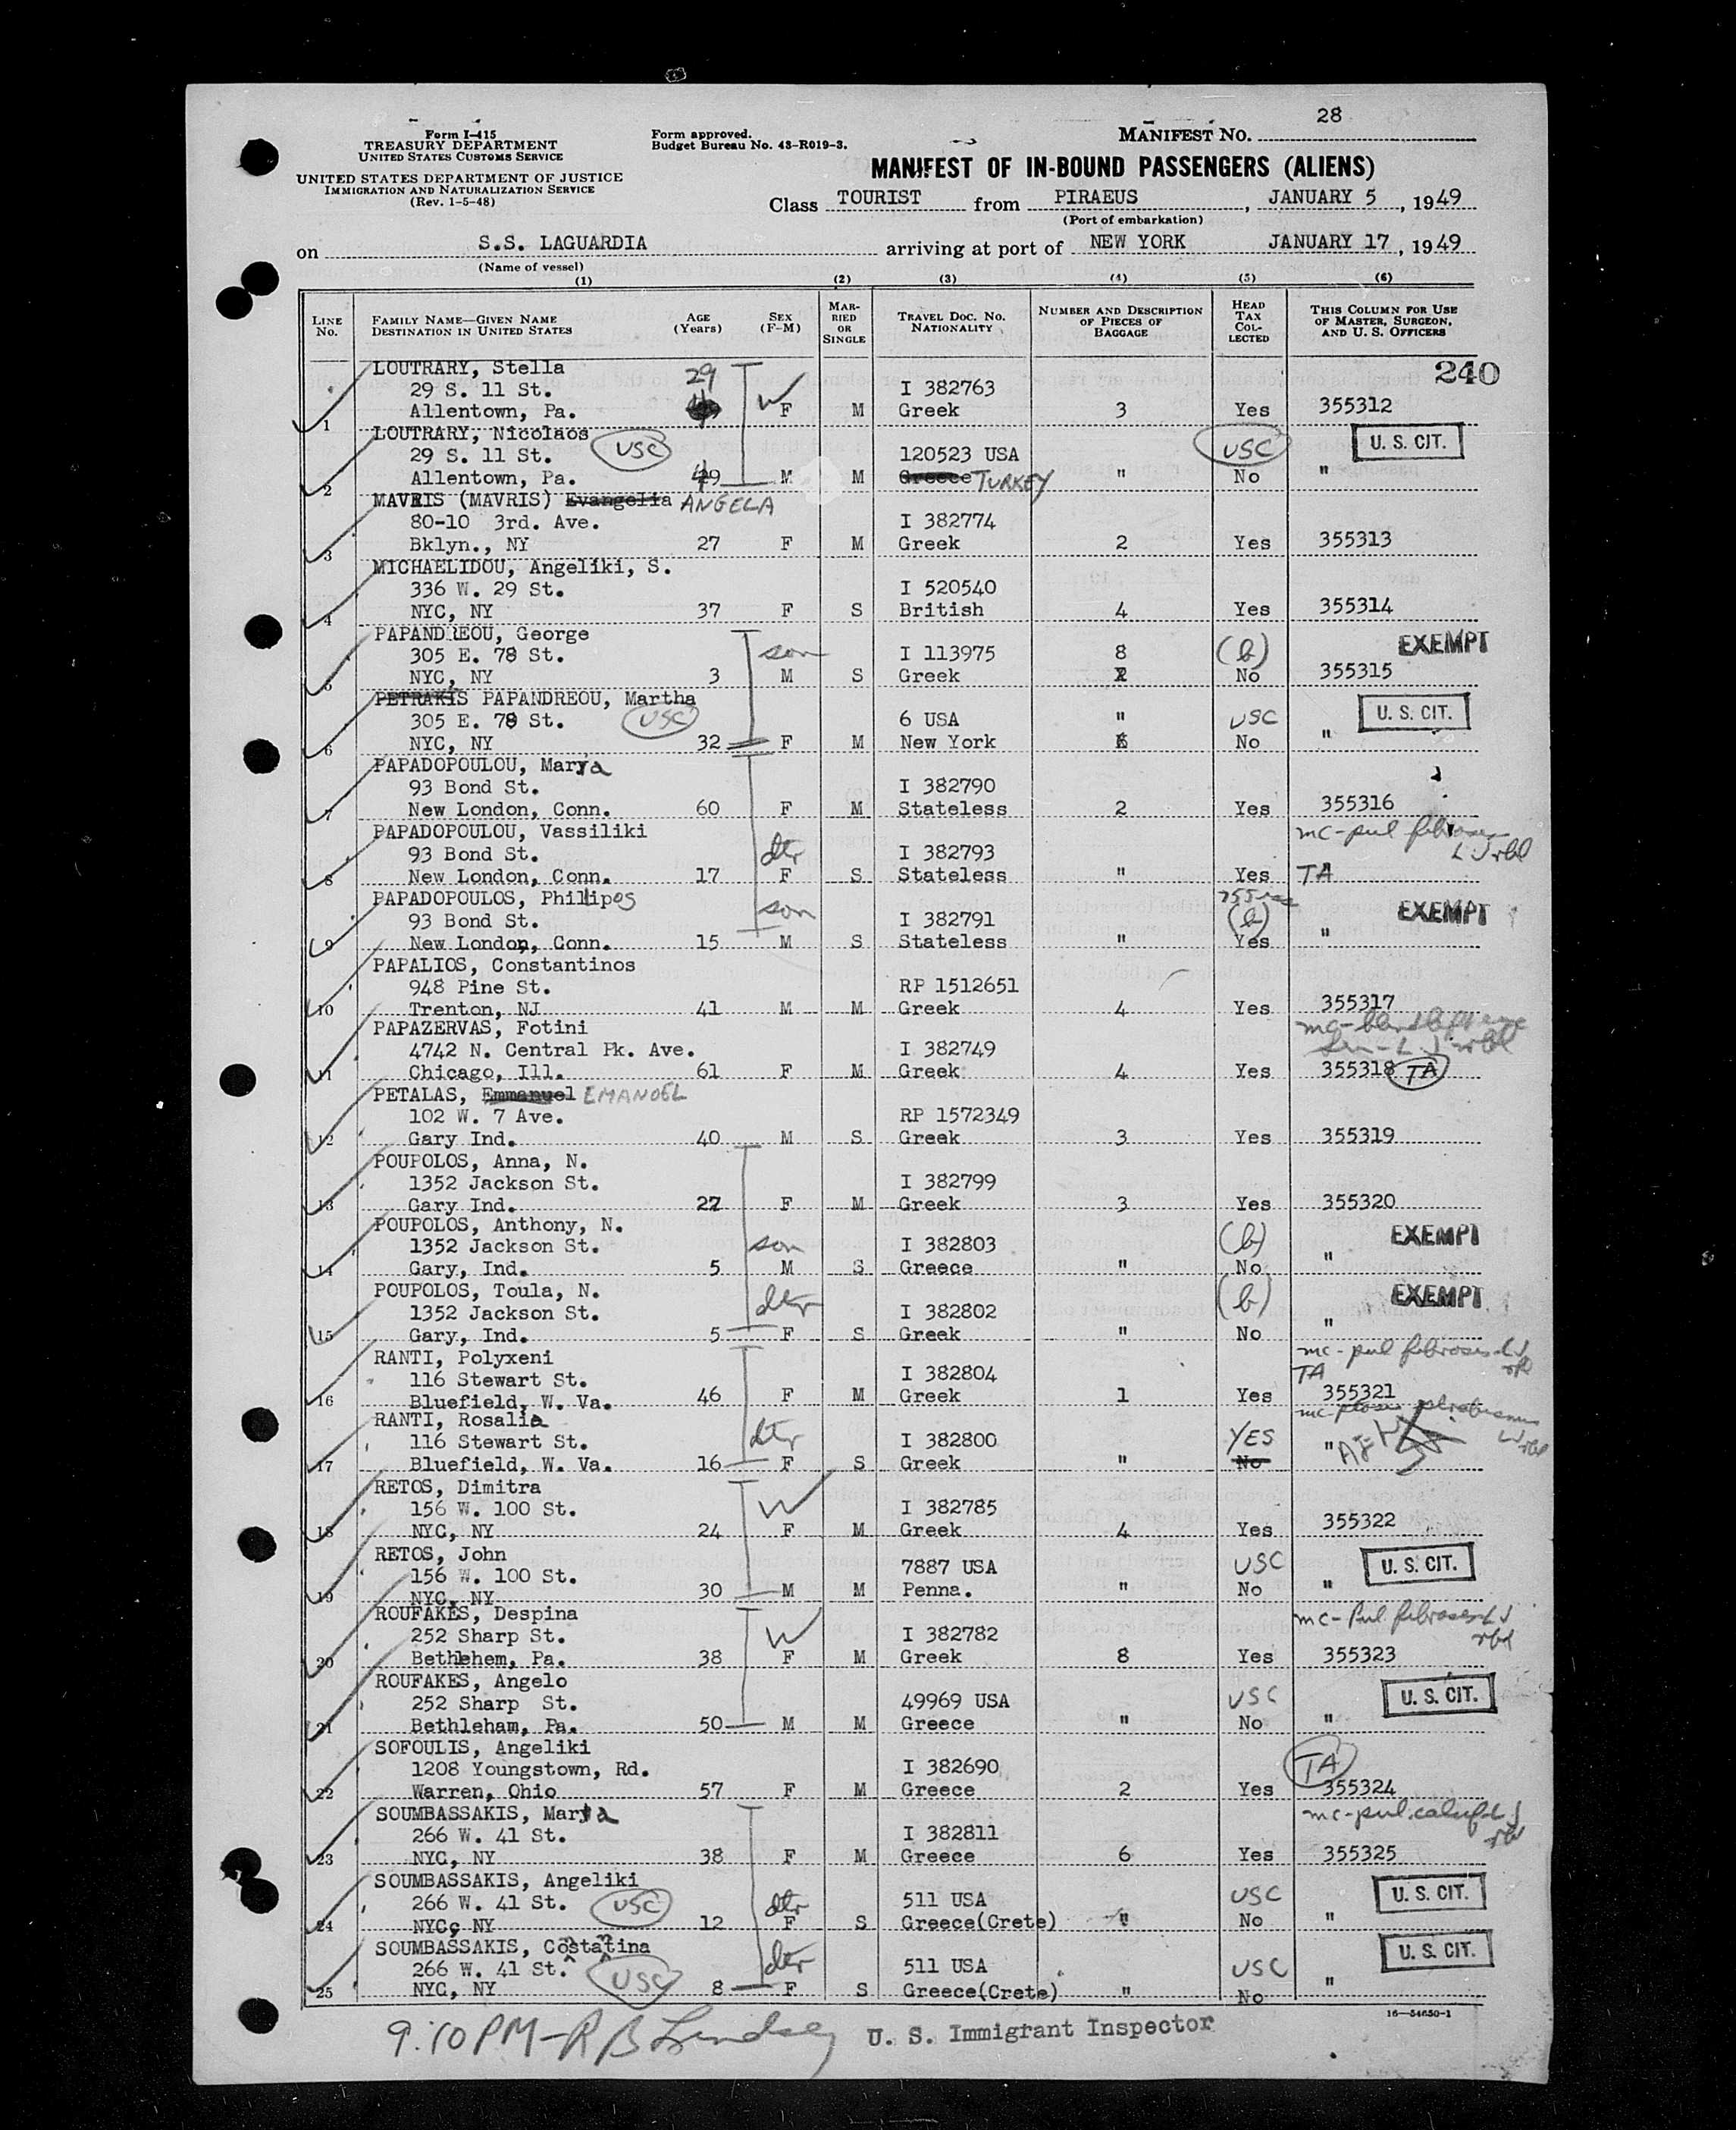 28
Form I-415
TREASURY DEPARTMENT
UNITED STATES CUSTOMS SERVICE
UNITED STATES DEPARTMENT OF JUSTICE
IMMIGRATION AND NATURALIZATION SERVICE
(Rev. 1-5-48)
Form approved.
Budget Bureau No. 43-R019-3.
MANIFEST NO.
MANIFEST OF IN-BOUND PASSENGERS (ALIENS)
Class TOURIST from PIRAEUS, JANUARY 5, 1949
(Port of embarkation)
on S.S. LAGUARDIA arriving at port of NEW YORK JANUARY 17, 1949
(Name of vessel)
(1) (2) (3) (4) (5) (6)
LINE No. FAMILY NAME—GIVEN NAME DESTINATION IN UNITED STATES AGE (Years) SEX (F-M) MARRIED OR SINGLE TRAVEL DOC. NO. NATIONALITY NUMBER AND DESCRIPTION OF PIECES OF BAGGAGE HEAD TAX COLLECTED THIS COLUMN FOR USE OF MASTER, SURGEON, AND U. S. OFFICERS
240
LOUTRARY, Stella 29
29 S. 11 St. W I 382763
1 Allentown, Pa. F M Greek 3 Yes 355312
LOUTRARY, Nicolaos USC USC U. S. CIT.
29 S. 11 St. 120523 USA
2 Allentown, Pa. 49 M M Greece TURKEY " No "
MAVRIS (MAVRIS) Evangelia ANGELA
80-10 3rd. Ave. I 382774
3 Bklyn., NY 27 F M Greek 2 Yes 355313
MICHAELIDOU, Angeliki, S.
336 W. 29 St. I 520540
4 NYC, NY 37 F S British 4 Yes 355314
PAPANDREOU, George EXEMPT
305 E. 78 St. son I 113975 8 (b)
5 NYC, NY 3 M S Greek 2 No 355315
PETRAKIS PAPANDREOU, Martha U. S. CIT.
305 E. 78 St. USC 6 USA " USC
6 NYC, NY 32 F M New York 6 No "
PAPADOPOULOU, Marya
93 Bond St. I 382790
7 New London, Conn. 60 F M Stateless 2 Yes 355316
PAPADOPOULOU, Vassiliki mc - pul fibroses
93 Bond St. dtr I 382793
8 New London, Conn. 17 F S Stateless " Yes TA
PAPADOPOULOS, Phillipos EXEMPT
93 Bond St. son I 382791 (b)
9 New London, Conn. 15 M S Stateless " Yes "
PAPALIOS, Constantinos
948 Pine St. RP 1512651
10 Trenton, NJ 41 M M Greek 4 Yes 355317
PAPAZERVAS, Fotini
4742 N. Central Pk. Ave. I 382749
11 Chicago, Ill. 61 F M Greek 4 Yes 355318 TA
PETALAS, Emmanuel EMANOEL
102 W. 7 Ave. RP 1572349
12 Gary Ind. 40 M S Greek 3 Yes 355319
POUPOLOS, Anna, N.
1352 Jackson St. I 382799
13 Gary Ind. 27 F M Greek 3 Yes 355320
POUPOLOS, Anthony, N. EXEMPT
1352 Jackson St. son I 382803 (b)
14 Gary, Ind. 5 M S Greece " No "
POUPOLOS, Toula, N. EXEMPT
1352 Jackson St. dtr I 382802 (b)
15 Gary, Ind. 5 F S Greek " No "
RANTI, Polyxeni mc - pul fibroses
116 Stewart St. I 382804 TA
16 Bluefield, W. Va. 46 F M Greek 1 Yes 355321
RANTI, Rosalia
116 Stewart St. dtr I 382800 YES
17 Bluefield, W. Va. 16 F S Greek " No "
RETOS, Dimitra
156 W. 100 St. W I 382785
18 NYC, NY 24 F M Greek 4 Yes 355322
RETOS, John U. S. CIT.
156 W. 100 St. 7887 USA USC
19 NYC, NY 30 M M Penna. " No "
ROUFAKES, Despina mc - Pul fibroses
252 Sharp St. W I 382782
20 Bethlehem, Pa. 38 F M Greek 8 Yes 355323
ROUFAKES, Angelo U. S. CIT.
252 Sharp St. 49969 USA USC
21 Bethleham, Pa. 50 M M Greece " No "
SOFOULIS, Angeliki
1208 Youngstown, Rd. I 382690 TA
22 Warren, Ohio 57 F M Greece 2 Yes 355324
SOUMBASSAKIS, Maria mc - pul.
266 W. 41 St. I 382811
23 NYC, NY 38 F M Greece 6 Yes 355325
SOUMBASSAKIS, Angeliki U. S. CIT.
266 W. 41 St. USC dtr 511 USA USC
24 NYC, NY 12 F S Greece(Crete) " No "
SOUMBASSAKIS, Costatina U. S. CIT.
266 W. 41 St. USC dtr 511 USA USC
25 NYC, NY 8 F S Greece(Crete) " No "
16—54650-1
9:10 PM - R B Lindsey U. S. Immigrant Inspector